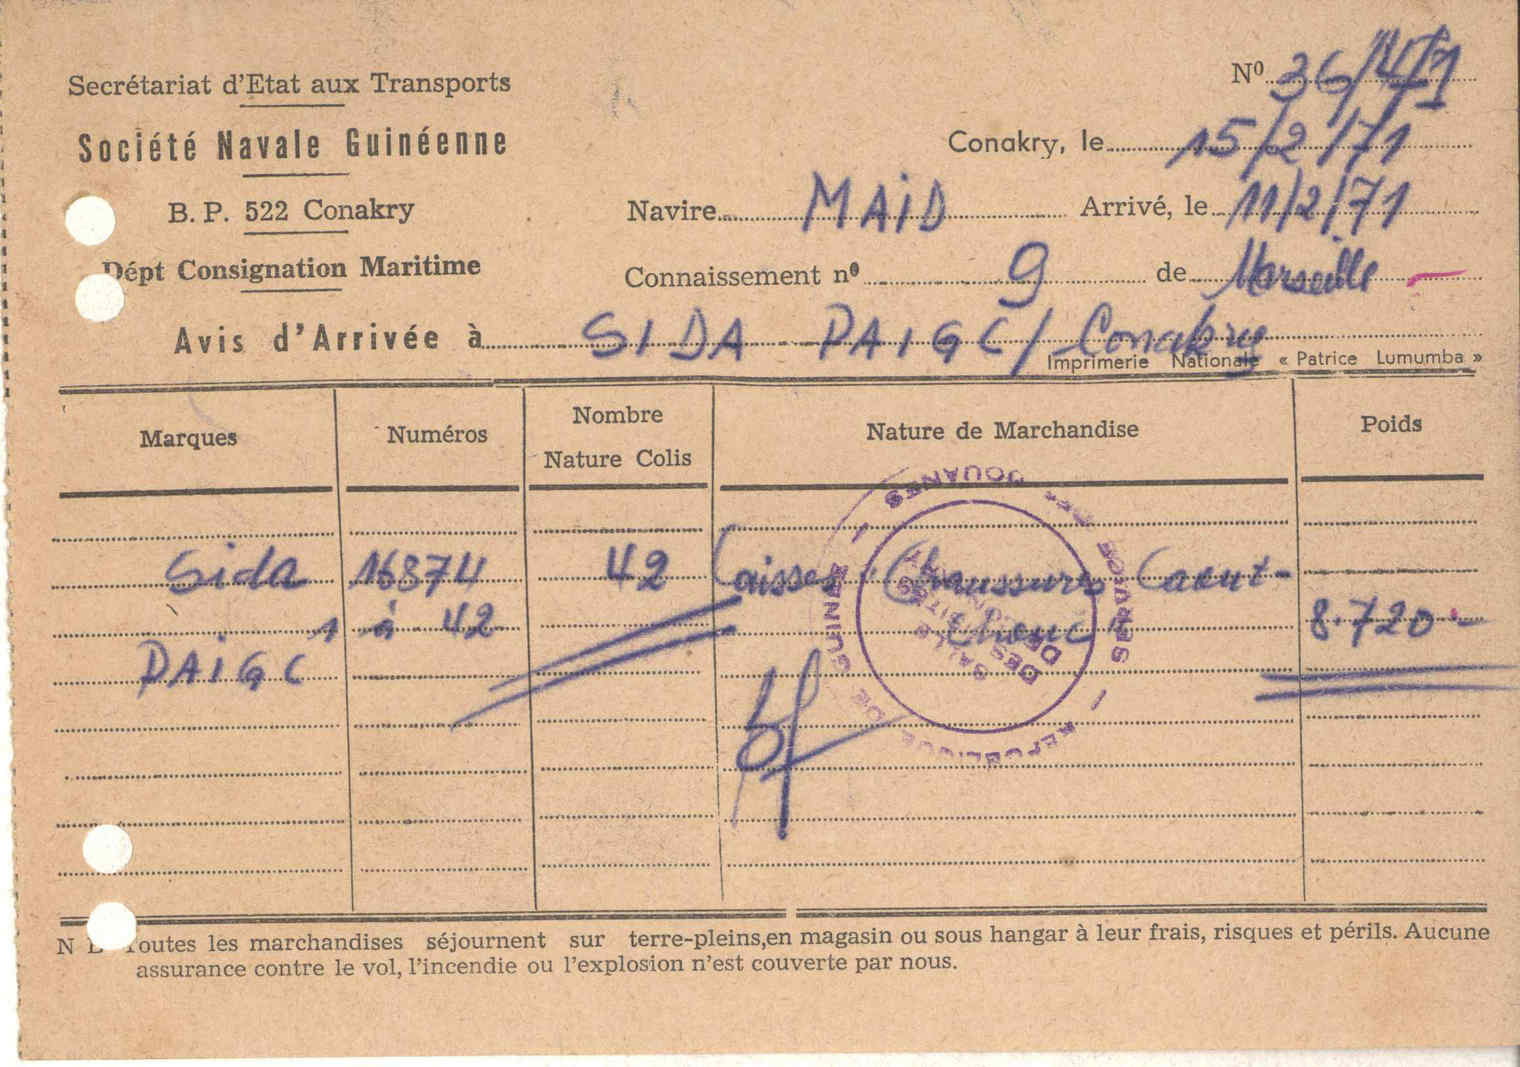 Secrétariat d'Etat aux Transports
Société Navale Guinéenne
B. P. 522 Conakry
Dépt Consignation Maritime
Nº 36/4/1
Conakry, le 15/2/71
Navire MAID Arrivé, le 11/2/71
Connaissement nº 9 de Marseille
Avis d'Arrivée à SIDA PAIGC/Conakry
Imprimerie Nationale « Patrice Lumumba »
Marques Numéros Nombre Nature Colis Nature de Marchandise Poids
Sida 16874 42 Caisses Chaussures Caout-
1 à 42 chouc 8.720
PAIGC
RÉPUBLIQUE DE GUINÉE - SERVICE DES DOUANES
N B Toutes les marchandises séjournent sur terre-pleins,en magasin ou sous hangar à leur frais, risques et périls. Aucune
assurance contre le vol, l'incendie ou l'explosion n'est couverte par nous.